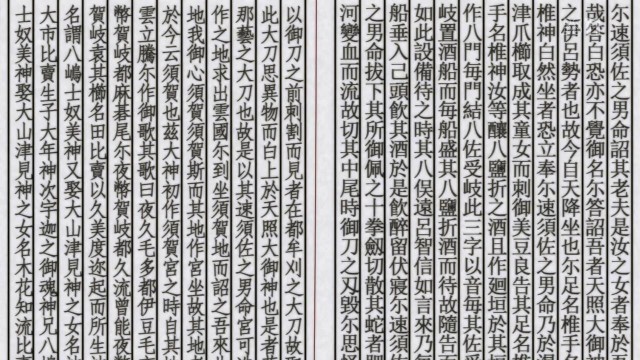 尓速須佐之男命詔其老夫是汝之女者奉於
哉答白恐亦不覺御名尓答詔吾者天照大御
之伊呂勢者也故今自天降坐也尓足名椎手
椎神白然坐者恐立奉尓速須佐之男命乃於
津爪櫛取成其童女而刺御美豆良告其足名椎
手名椎神汝等釀八鹽折之酒且作廻垣於其
作八門毎門結八佐受岐此三字以音毎其佐
岐置酒船而毎船盛其八鹽折酒而待故隨告而
如此設備待之時其八俣遠呂智信如言來乃毎
船垂入己頭飲其酒於是飲醉留伏寢尓速須佐
之男命拔下其所御佩之十拳劔切散其蛇者
河變血而流故切其中尾時御刀之刃毀尓思怪
以御刀之前刺割而見者在都牟刈之大刀故
此大刀思異物而白上於天照大御神也是者
那藝之大刀也故是以其速須佐之男命宮可
作之地求出雲國尓到坐須賀地而詔之吾來
地我御心須賀須賀斯而其地作宮坐故其地
於今云須賀也茲大神初作須賀宮之時自其
雲立騰尓作御歌其歌曰夜久毛多都伊豆毛
幣賀岐都麻碁尾尓夜幣賀岐都久流曾能夜
賀岐袁其櫛名田比賣以久美度迩起而所生
名謂八嶋士奴美神又娶大山津見神之女名
大市比賣生子大年神次字迦之御魂神兄八
士奴美神娶大山津見神之女名木花知流比